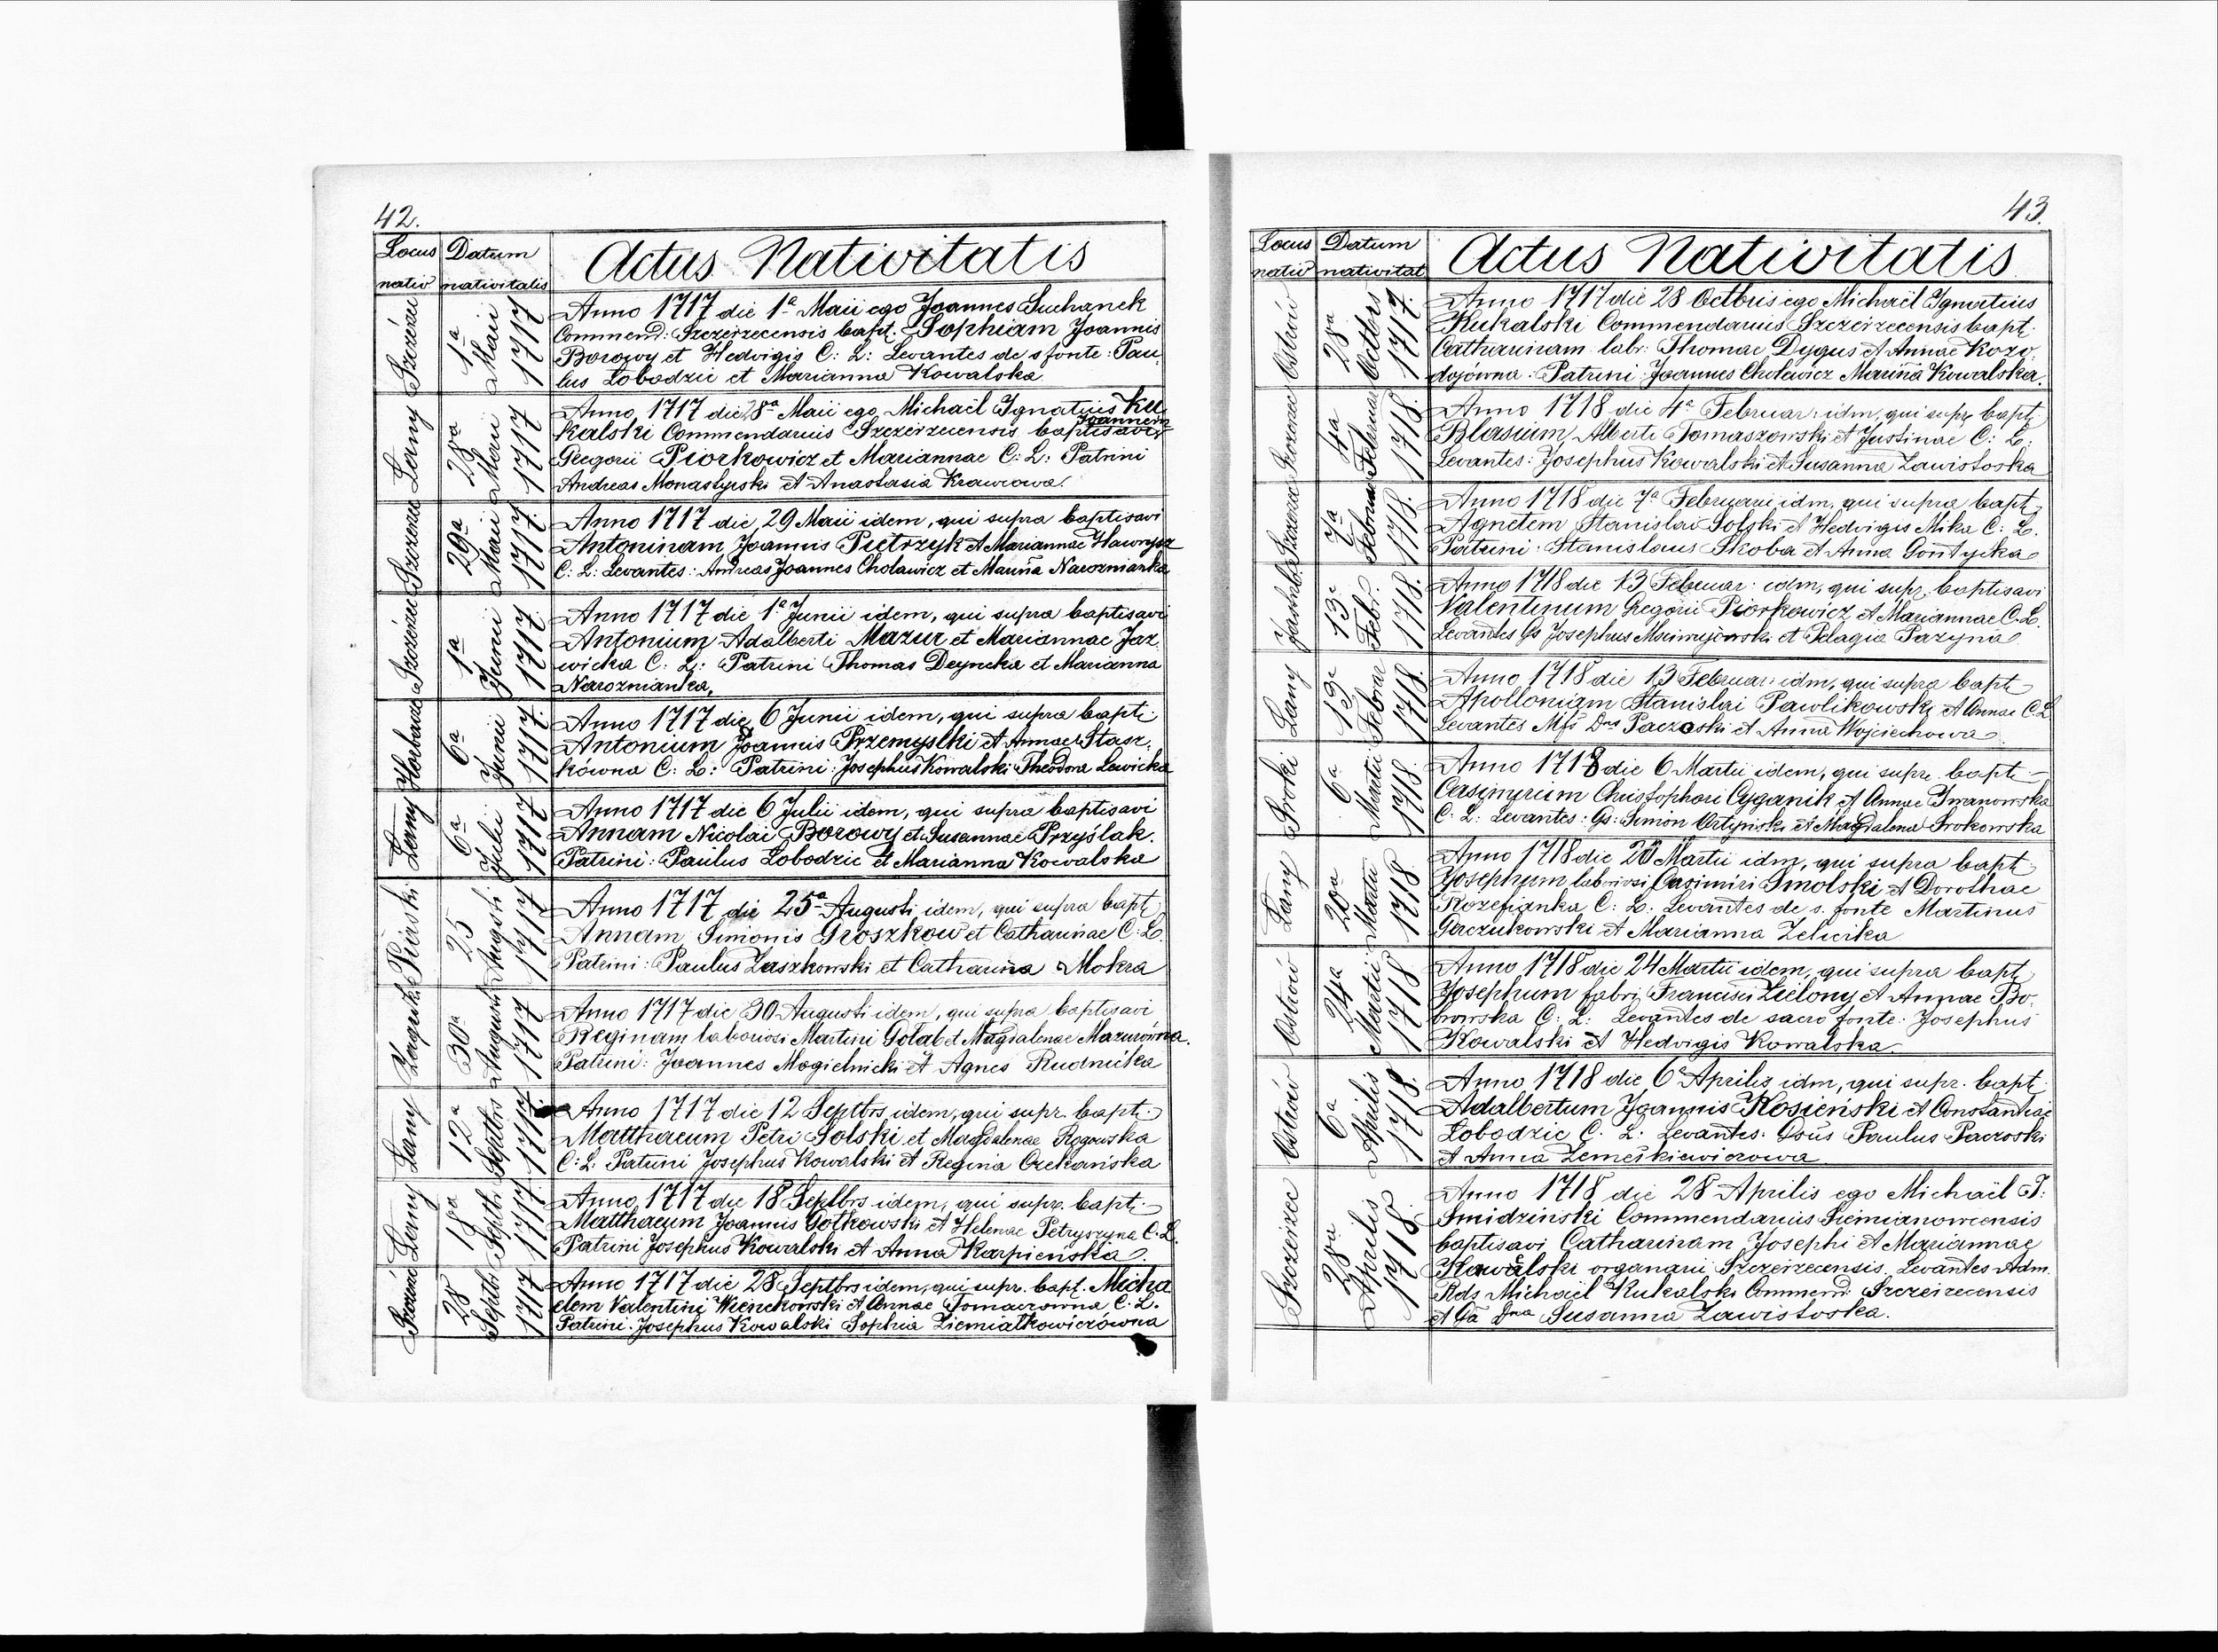 42.
Locus nativ
Datum nativitatis
Actus Nativitatis
Szczerzec
1a Maii 1717
Anno 1717 die 1a Maii ego Joannes Suchanek
Commend: Szczerzecensis bapt. Sophiam Joannis
Borowy et Hedvigis C: L: Levantes de s fonte: Pau
lus Łobodzic et Marianna Kowalska
Łany
28a Maii 1717
Anno 1717 die 28a Maii ego Michaël Ignatius Ku
kalski Commendarius Szczerzecensis baptisavi Joannem
Gregorii Piorkowicz et Mariannae C: L: Patrini
Andreas Monastyrski et Anastasia Krawcowa.
Szczerzec
29a Maii 1717
Anno 1717 die 29 Maii idem, qui supra baptisavi
Antoninam Joannis Pietrzyk et Mariannae Hawrysz
C: L: Levantes: Andreas Joannes Cholawicz et Marina Naroznianka
Szczerzec
1a Junii 1717
Anno 1717 die 1a Junii idem, qui supra baptisavi
Antonium Adalberti Mazur et Mariannae Jaz
wicka C: L: Patrini Thomas Deyneka et Marianna
Narozniańka,
6a Junii 1717
Anno 1717 die 6 Junii idem, qui supra bapti-
Antonium Joannis Przemyslki et Annae Stasz.
kówna C: L: Patrini: Josephus Kowalski Theodora Lewicka
Łany
6a Julii 1717
Anno 1717 die 6 Julii idem, qui supra baptisavi
Annam Nicolai Borowy et Susannae Przyślak.
Patrini: Paulus Łobodzic et Marianna Kowalska
25 Augsti 1717
Anno 1717 die 25a Augusti idem, qui supra bapt
Annam Simonis Groszkow et Catharinae C: L.
Patrini: Paulus Laszkowski et Catharina Mokra
30a Augusti 1717
Anno 1717 die 30 Augusti idem, qui supra baptisavi
Reginam laboriosi Martini Gołab et Magdalenae Mazurówna.
Patrini: Joannes Mogielnicki et Agnes Rudnicka
Łany
12a Septbrs 1717.
Anno 1717 die 12 Septbrs idem, qui supr. bapti-
Matthaeum Petri Solski et Magdalenae Rogowska
C: L: Patrini Josephus Kowalski et Regina Czekańska
Łany
18a Septb 1717
Anno 1717 die 18 Septbrs idem, qui supr. bapti-
Matthaeum Joannis Gotkowski et Helenae Petryszyna C. L.
Patrini Josephus Kowalski et Anna Karpieńska.
28 Septb 1717
Anno 1717 die 28 Septbrs idem, qui supr. bapt. Micha
elem Valentini Wienckowski et Annae Tomaczowna C. L.
Patrini. Josephus Kowalski Sophia Ziemiałkowiczówna
43.
Locus nativ
Datum nativitat
Actus Nativitatis
Ostrów
28a Octbrs 1717.
Anno 1717 die 28 Octbris ego Michaël Ignatius
Kukalski Commendarius Szczerzecensis bapt.
Catharinam labr: Thomae Dygus et Annae Kozo
dojówna: Patrini Joannes Cholewicz Marina Kowalska.
Szczerzec
4a Februar 1718.
Anno 1718 die 4a Februar: idm, qui supr bapt
Blasium Alberti Tomaszowski et Justinae C: L:
Levantes: Josephus Kowalski et Susanna Zawistoska
Szczerzec
7a Februar 1718.
Anno 1718 die 7a Februarii idm, qui supra bapt
Agnetem Stanislai Solski et Hedvigis Mika C: L.
Patrini: Stanislaus Skoba et Anna Gontycka
13a Febr. 1718.
Anno 1718 die 13 Februar: idm, qui supr. baptisavi
Valentinum Gregorii Piorkowicz et Mariannae C. L.
Levantes Gs Josephus et Pelagia Pazyna
Łany
Februar 1718
Anno 1718 die 13 Februar: idm, qui supra bapt
Apolloniam Stanislai Pawlikowski et Annae C. L
Levantes Mfs Dns Paczoski et Anna Wojciechowa
Sroki
6a Martii 1718
Anno 1718 die 6 Martii idem, qui supr. bapti-
Casimirum Christophori Cyganik et Annae Iwanowska
C: L: Levantes: Gs: Simon Ortyński et Magdalena Srokowska
Łany
20a Martii 1718
Anno 1718 die 20 Martii idm, qui supra bapt
Josephum laboriosi Casimiri Smolski et Dorothae
Rozefianka C: L: Levantes de s. fonte Martinus
Gaczukowski et Marianna Zelicika
Ostrów
24a Martii 1718
Anno 1718 die 24 Martii idem, qui supra bapt
Josephum fabri Francisci Zielony et Annae Bo
browska C: L: Levantes de sacro fonte: Josephus
Kowalski et Hedvigis Kowalska.
Ostrów
6a Aprilis 1718.
Anno 1718 die 6a Aprilis idm, qui supr. bapt
Adalbertum Joannis Kosieński et Constantiae
Łobodzic C. L. Levantes. Paulus Paczoski
et Anna Zemełkiewiczowa
Szczerzec
28a Aprilis 1718.
Anno 1718 die 28 Aprilis ego Michaël T:
Smidziński Commendarius Siemianowcensis
baptisavi Catharinam Josephi et Mariannae
Kowalski organarii Szczerzecensis. Levantes Adm.
Rds Michaël Kukalski Commend Szczerzecensis
et Ga Dna Susanna Zawistoska.